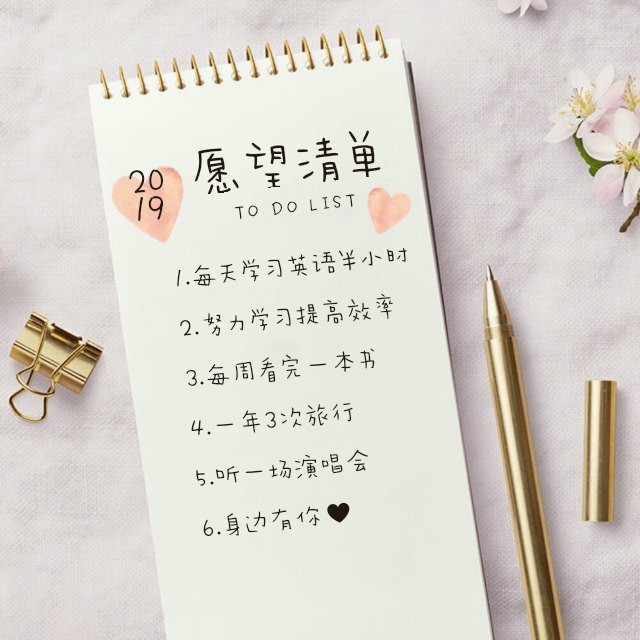 2019
愿望清单
TO DO LIST
1.每天学习英语半小时
2.努力学习提高效率
3.每周看完一本书
4.一年3次旅行
5.听一场演唱会
6.身边有你♥